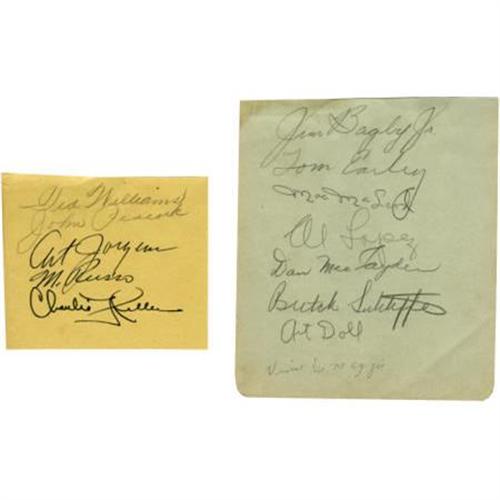 Ted Williams
John Peacock
Art Jorgens
M. Russo
Charlie Keller
Jim Bagby Jr.
Tom Earley
Al Lopez
Dan MacFayden
Butch Sutcliffe
Art Doll